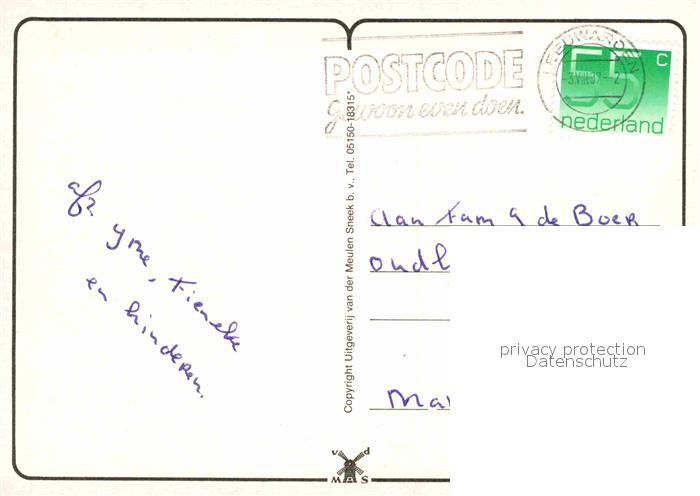 POSTCODE
gewoon even doen.
LEEUWARDEN
55 c
nederland
afz
Yme, Tieneke
en kinderen.
Copyright Uitgeverij van der Meulen Sneek b. v., Tel. 05150-18315*
Aan Fam de Boer
privacy protection
Datenschutz
v d
MAS